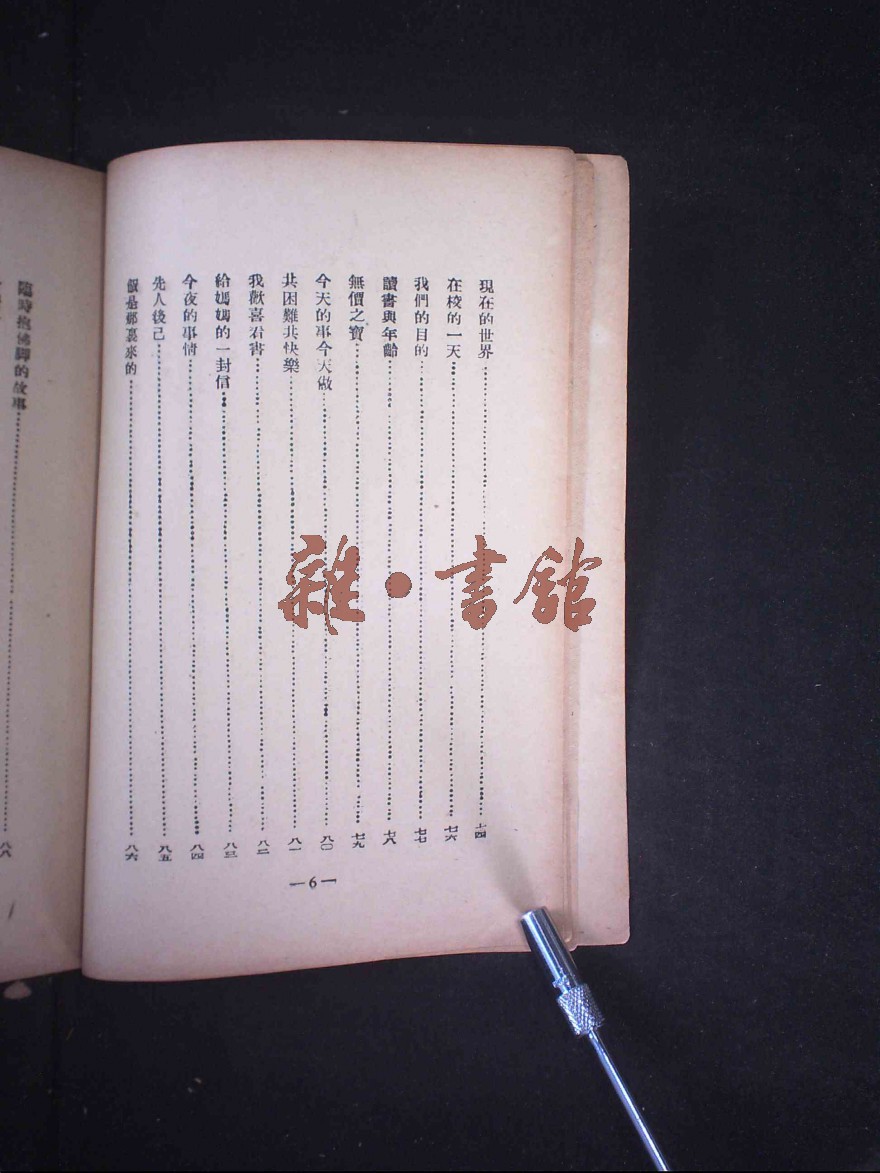 現在的世界……七四
在校的一天……七六
我們的目的……七七
讀書與年齡……七八
無價之寶……七九
今天的事今天做……八〇
共困難共快樂……八一
我歡喜看書……八二
給媽媽的一封信……八三
今夜的事情……八四
先人後己……八五
飯是那裏來的……八六
—6—
臨時抱佛脚的故事……八八
雜·書館